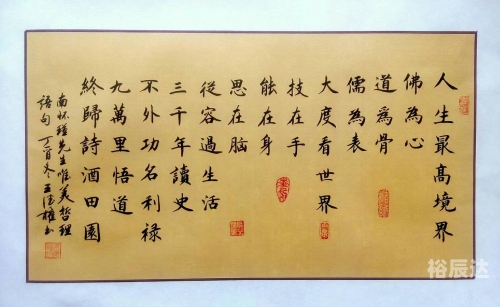 人生最高境界
佛為心
道為骨
儒為表
大度看世界
技在手
能在身
思在脑
從容過生活
三千年讀史
不外功名利祿
九萬里悟道
終歸詩酒田園
南怀瑾先生唯美哲理
语句丁酉冬王德雄书
裕辰达